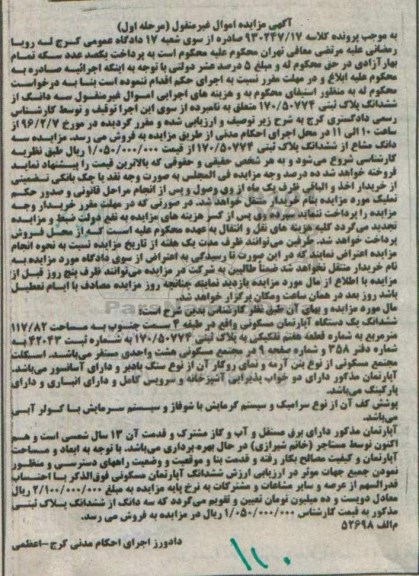 آگهی مزایده اموال غیرمنقول (مرحله اول)
به موجب پرونده کلاسه ۹۳۰۲۴۷/۱۷ صادره از سوی شعبه ۱۷ دادگاه عمومی کرج له رویا
رمضانی علیه مرتضی معافی تهران محکوم علیه محکوم است به پرداخت یکصد عدد سکه تمام
بهار آزادی در حق محکوم له و مبلغ ۵ درصد عشر دولتی با توجه به اینکه اجرائیه صادره به
محکوم علیه ابلاغ و در مهلت مقرر نسبت به اجرای حکم اقدام ننموده است بنا به درخواست
محکوم له به منظور استیفای محکوم به و هزینه های اجرایی اموال غیرمنقول سه دانگ از
ششدانگ پلاک ثبتی ۱۷۰/۵۰۷۷۴ متعلق به نامبرده از سوی این اجرا توقیف و توسط کارشناس
رسمی دادگستری کرج به شرح زیر توصیف و ارزیابی شده و مقرر گردیده در مورخ ۹۶/۲/۷ از
ساعت ۱۰ الی ۱۱ در محل اجرای احکام مدنی از طریق مزایده به فروش می رسد. مزایده سه
دانگ مشاع از ششدانگ پلاک ثبتی ۱۷۰/۵۰۷۷۴ از قیمت ۱/۰۵۰/۰۰۰/۰۰۰ ریال طبق نظریه
کارشناسی شروع می‌شود و به هر شخصی حقیقی و حقوقی که بالاترین قیمت را پیشنهاد نماید
فروخته خواهد شد ده درصد وجه مزایده فی المجلس به صورت وجه نقد یا چک بانکی تضمینی
از خریدار اخذ و الباقی ظرف یک ماه از وی وصول و پس از انجام مراحل قانونی و صدور حکم
تملیک مورد مزایده بنام خریدار منتقل خواهد شد. در صورتی که در مهلت مقرر خریدار وجه
مزایده را پرداخت ننماید سپرده وی پس از کسر هزینه های مزایده به نفع دولت ضبط و مزایده
تجدید می‌گردد کلیه هزینه های نقل و انتقال به عهده محکوم علیه است که از محل فروش
پرداخت خواهد شد. طرفین می‌توانند ظرف مدت یک هفته از تاریخ مزایده نسبت به نحوه انجام
مزایده اعتراض نمایند که در این صورت تا رسیدگی به اعتراض از سوی دادگاه مورد مزایده به
نام خریدار منتقل نخواهد شد ضمنا طالبین به شرکت در مزایده می‌توانند ظرف پنج روز قبل از
مزایده با اطلاع از مال مورد مزایده بازدید نمایند چنانچه روز مزایده مصادف با ایام تعطیل
باشد روز بعد در همان ساعت ومکان برگزار خواهد شد.
مال مورد مزایده و بهای آن طبق نظر کارشناس بدین شرح است:
ششدانگ یک دستگاه آپارتمان مسکونی واقع در طبقه ۴ سمت جنوب به مساحت ۱۱۷/۸۲
مترمربع به شماره قطعه هفتم تفکیکی به پلاک ثبتی ۱۷۰/۵۰۷۷۴ به شماره ثبت ۴۲۰۴۳ به
شماره دفتر ۳۵۸ و شماره صفحه ۹ در مجتمع مسکونی هشت واحدی مستقر می‌باشد. اسکلت
مجتمع مسکونی از نوع بتن آرمه و نمای روکار آن از نوع سنگ بادبر و دارای آسانسور می‌باشد.
آپارتمان مذکور دارای دو خواب پذیرایی آشپزخانه و سرویس کامل و دارای انباری و دارای
پارکینگ می‌باشد.
پوشش کف آن از نوع سرامیک و سیستم گرمایش با شوفاژ و سیستم سرمایش با کولر آبی
می‌باشد.
آپارتمان مذکور دارای برق مستقل و آب و گاز مشترک و قدمت آن ۱۳ سال شمسی است و هم
اکنون توسط مستاجر (خانم شیرازی) در حال بهره برداری می‌باشد. با توجه به ابعاد و مساحت
آپارتمان و کیفیت مصالح بکار رفته و قدمت بنا و موقعیت و وضعیت راههای دسترسی و منظور
نمودن جمیع جهات موثر در ارزیابی ارزش ششدانگ آپارتمان مسکونی فوق‌الذکر با احتساب
قدرالسهم از عرصه و سایر مشاعات و مشترکات به نرخ پایه مزایده به مبلغ ۲/۱۰۰/۰۰۰/۰۰۰ ریال
معادل دویست و ده میلیون تومان تعیین و تقویم می‌گردد که سه دانگ از ششدانگ پلاک ثبتی
مذکور به قیمت کارشناس ۱/۰۵۰/۰۰۰/۰۰۰ ریال در مزایده به فروش می رسد.
م‌الف ۵۲۶۹۸
دادورز اجرای احکام مدنی کرج-اعظمی